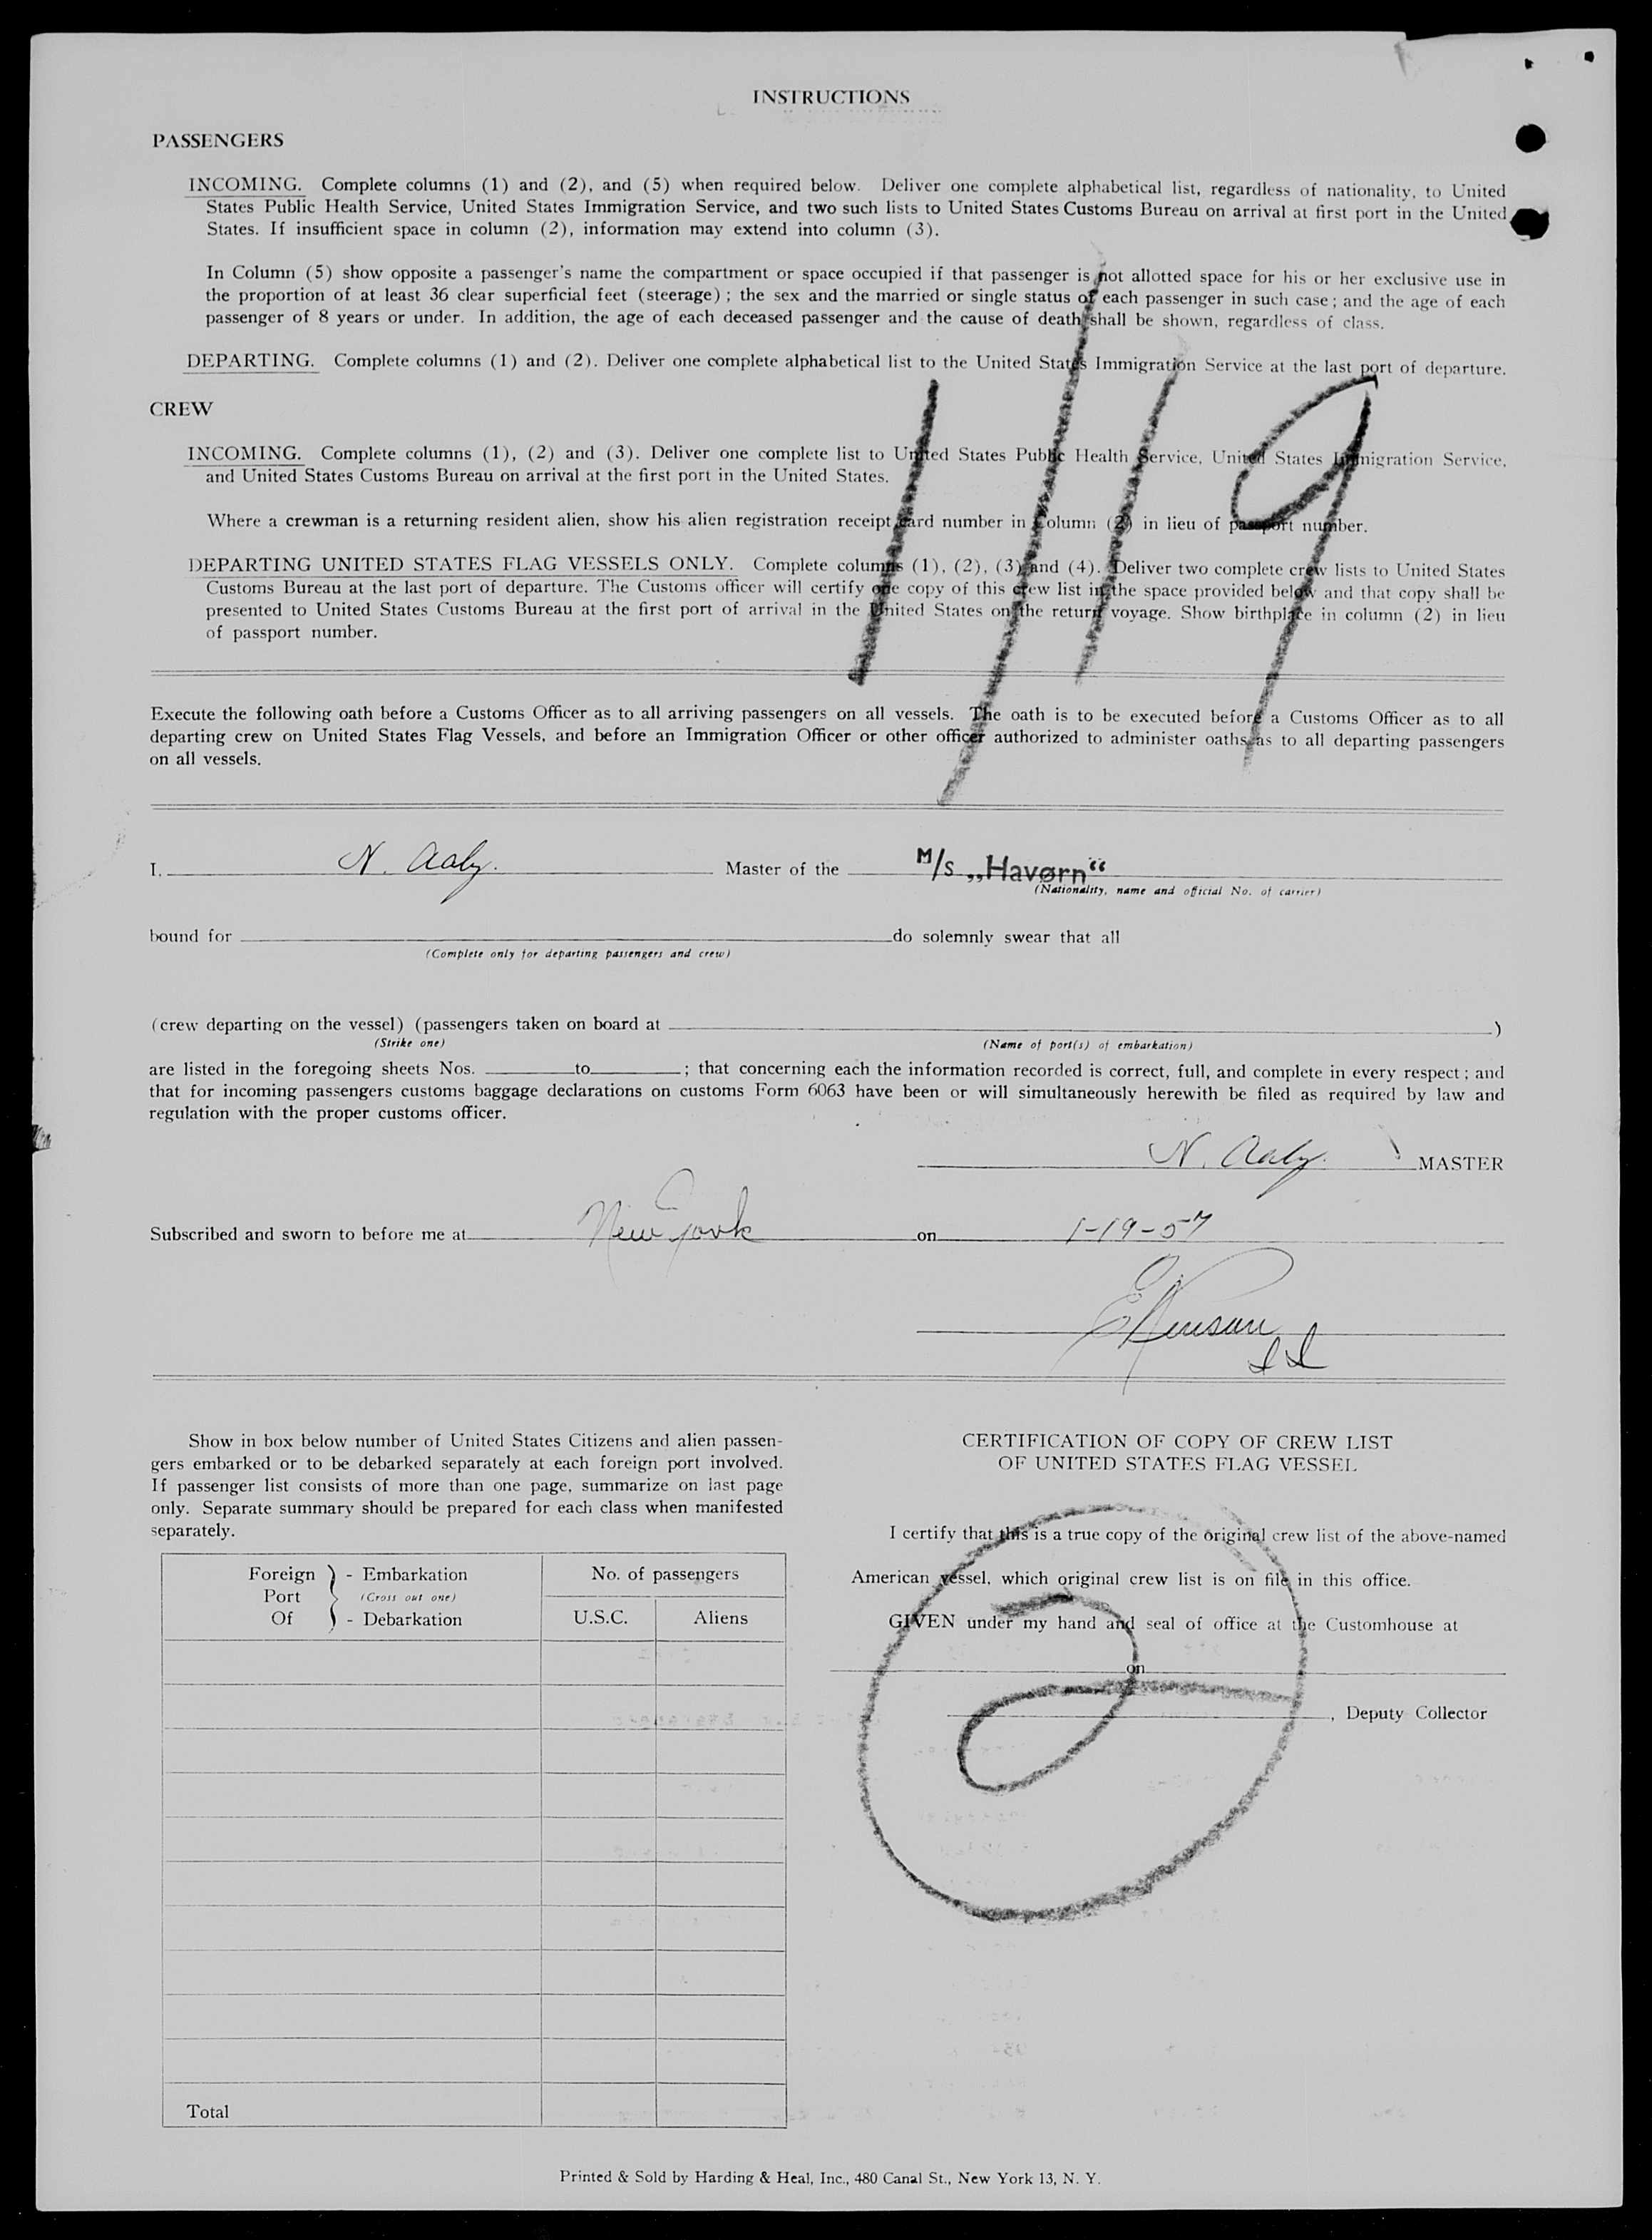 INSTRUCTIONS
PASSENGERS
INCOMING. Complete columns (1) and (2), and (5) when required below. Deliver one complete alphabetical list, regardless of nationality, to United
States Public Health Service, United States Immigration Service, and two such lists to United States Customs Bureau on arrival at first port in the United
States. If insufficient space in column (2), information may extend into column (3).
In Column (5) show opposite a passenger's name the compartment or space occupied if that passenger is not allotted space for his or her exclusive use in
the proportion of at least 36 clear superficial feet (steerage); the sex and the married or single status of each passenger in such case; and the age of each
passenger of 8 years or under. In addition, the age of each deceased passenger and the cause of death shall be shown, regardless of class.
DEPARTING. Complete columns (1) and (2). Deliver one complete alphabetical list to the United States Immigration Service at the last port of departure.
CREW
INCOMING. Complete columns (1), (2) and (3). Deliver one complete list to United States Public Health Service, United States Immigration Service,
and United States Customs Bureau on arrival at the first port in the United States.
Where a crewman is a returning resident alien, show his alien registration receipt card number in Column (2) in lieu of passport number.
DEPARTING UNITED STATES FLAG VESSELS ONLY. Complete columns (1), (2), (3) and (4). Deliver two complete crew lists to United States
Customs Bureau at the last port of departure. The Customs officer will certify one copy of this crew list in the space provided below and that copy shall be
presented to United States Customs Bureau at the first port of arrival in the United States on the return voyage. Show birthplace in column (2) in lieu
of passport number.
1/19
Execute the following oath before a Customs Officer as to all arriving passengers on all vessels. The oath is to be executed before a Customs Officer as to all
departing crew on United States Flag Vessels, and before an Immigration Officer or other officer authorized to administer oaths as to all departing passengers
on all vessels.
I, N. Aaby. Master of the M/S „Havørn“
(Nationality, name and official No. of carrier)
bound for do solemnly swear that all
(Complete only for departing passengers and crew)
(crew departing on the vessel) (passengers taken on board at )
(Strike one) (Name of port(s) of embarkation)
are listed in the foregoing sheets Nos. to ; that concerning each the information recorded is correct, full, and complete in every respect; and
that for incoming passengers customs baggage declarations on customs Form 6063 have been or will simultaneously herewith be filed as required by law and
regulation with the proper customs officer.
N. Aaby. MASTER
Subscribed and sworn to before me at New York on 1-19-57
Show in box below number of United States Citizens and alien passen-
gers embarked or to be debarked separately at each foreign port involved.
If passenger list consists of more than one page, summarize on last page
only. Separate summary should be prepared for each class when manifested
separately.
Foreign - Embarkation No. of passengers
Port (Cross out one)
Of - Debarkation U.S.C. Aliens
Total
CERTIFICATION OF COPY OF CREW LIST
OF UNITED STATES FLAG VESSEL
I certify that this is a true copy of the original crew list of the above-named
American vessel, which original crew list is on file in this office.
GIVEN under my hand and seal of office at the Customhouse at
on
, Deputy Collector
2
Printed & Sold by Harding & Heal, Inc., 480 Canal St., New York 13, N. Y.